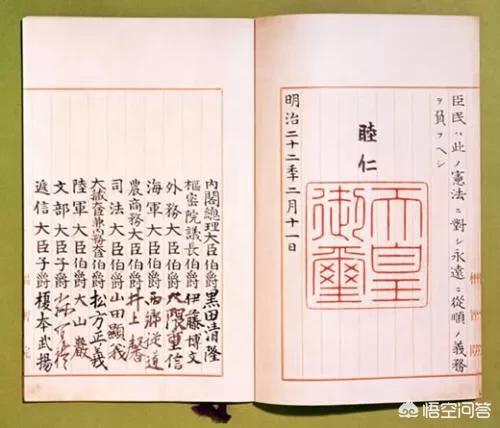 臣民ハ此ノ憲法ニ對シ永遠ニ從順ノ義務
ヲ負フヘシ
睦仁
天皇
御璽
明治二十二年二月十一日
內閣總理大臣伯爵黒田清隆
樞密院議長伯爵伊藤博文
外務大臣伯爵大隈重信
海軍大臣伯爵西鄉從道
農商務大臣伯爵井上馨
司法大臣伯爵山田顯義
大藏大臣兼內務大臣伯爵松方正義
陸軍大臣伯爵大山巖
文部大臣子爵
遞信大臣子爵榎本武揚
悟空问答